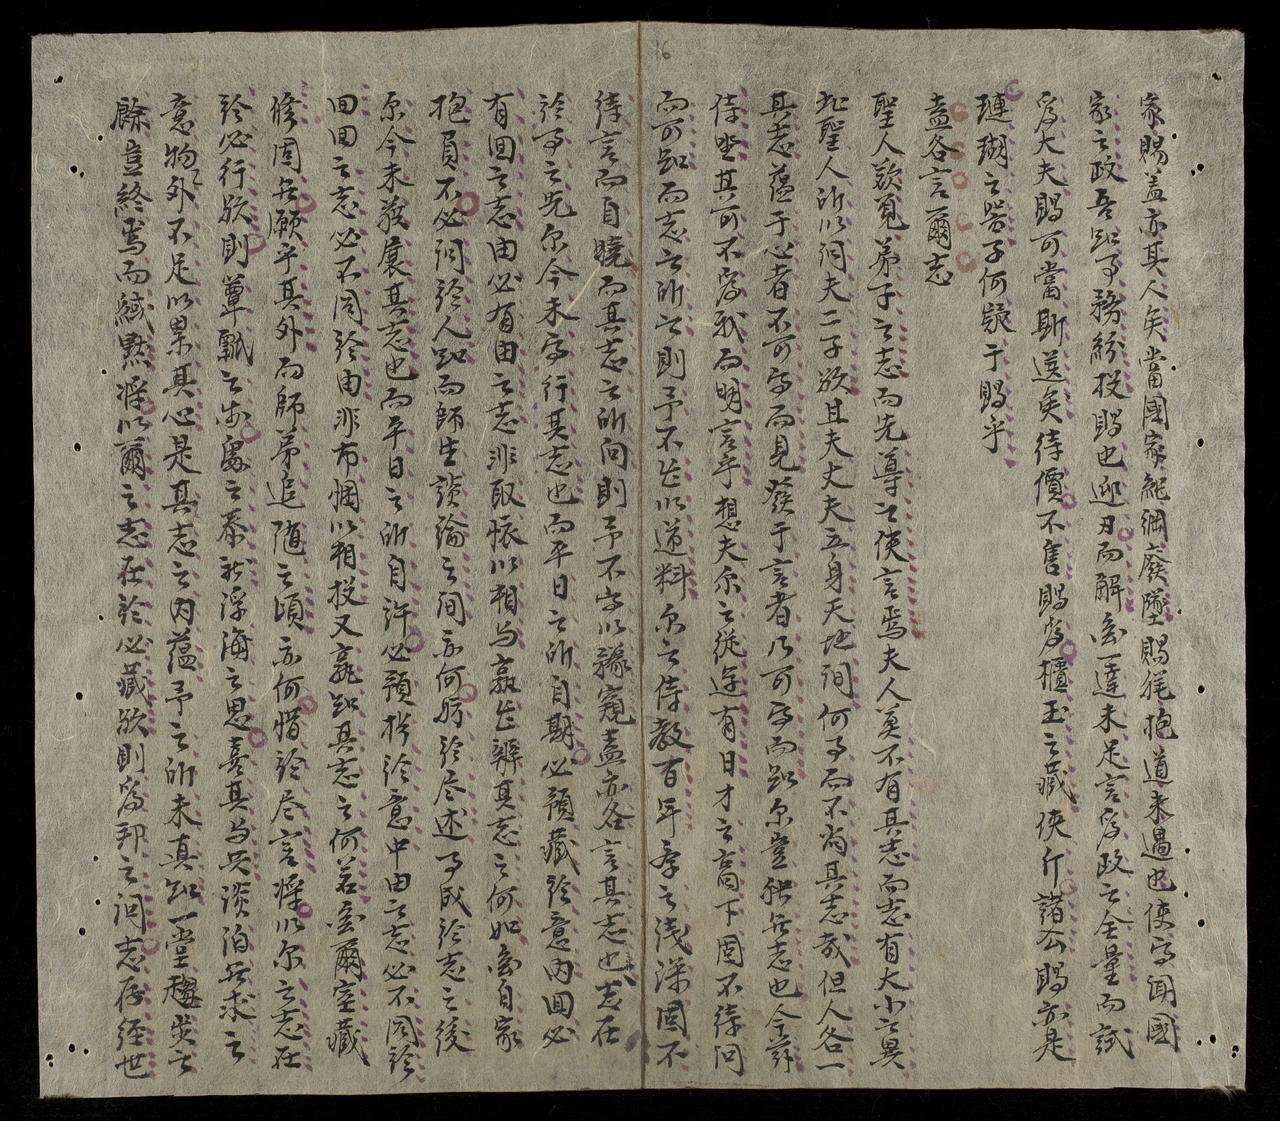 家賜盖亦其人矣當國家紀綱廢墜賜能抱道未遇也使為聞國
家之政吾知事務紛投賜也迎刃而解奚達未足言為政之全量而試
為大夫賜可當斯選矣待價不售賜為櫃玉之藏使斤諸公賜亦是
璉瑚之器子何疑于賜乎
盍各言爾志
聖人欲覓弟子之志而先導以使言焉夫人莫不有其志而志有大小之異
此聖人所以詞夫二子欤且夫丈夫立身天地間何事而不尚其志哉但人各一
其志蘊于心者不可得而見發于言者乃可得而知尔豈能無志也今茲
侍坐其可不為我而明言乎想夫尔之從遊有日才之高下固不待問
而可知而志之所之則予不能以道料尔之侍教百年學之淺深固不
待言而自曉而其志之所向則予不敢以豫窺盍亦各言其志也志在
於事之先尔今未得行其志也而平日之所自期必預藏於意內回必
有回之志由必有由之志非取懷以相与孰能辨其志之何如奚自家
抱負不必詞於人知而師生談論之間亦何妨於尽述事成於志之後
尔今未获展其志也而平日之所自許必預搭於意中由之志必不同於
回回之志必不同於由非布悃以相投又孰知其志之何若奚爾室藏
修固無願乎其外而師弟追随之頃亦何惜於尽言將以尔之志在
於必行欤則簞瓢之安勇之恭能浮海之思喜其与只淡泊無求之
意物外不足以累其心是其志之內蘊予之所未真知一堂趨步之
餘豈終焉而緘默將以爾之志在於必藏欤則為邦之问志存經世